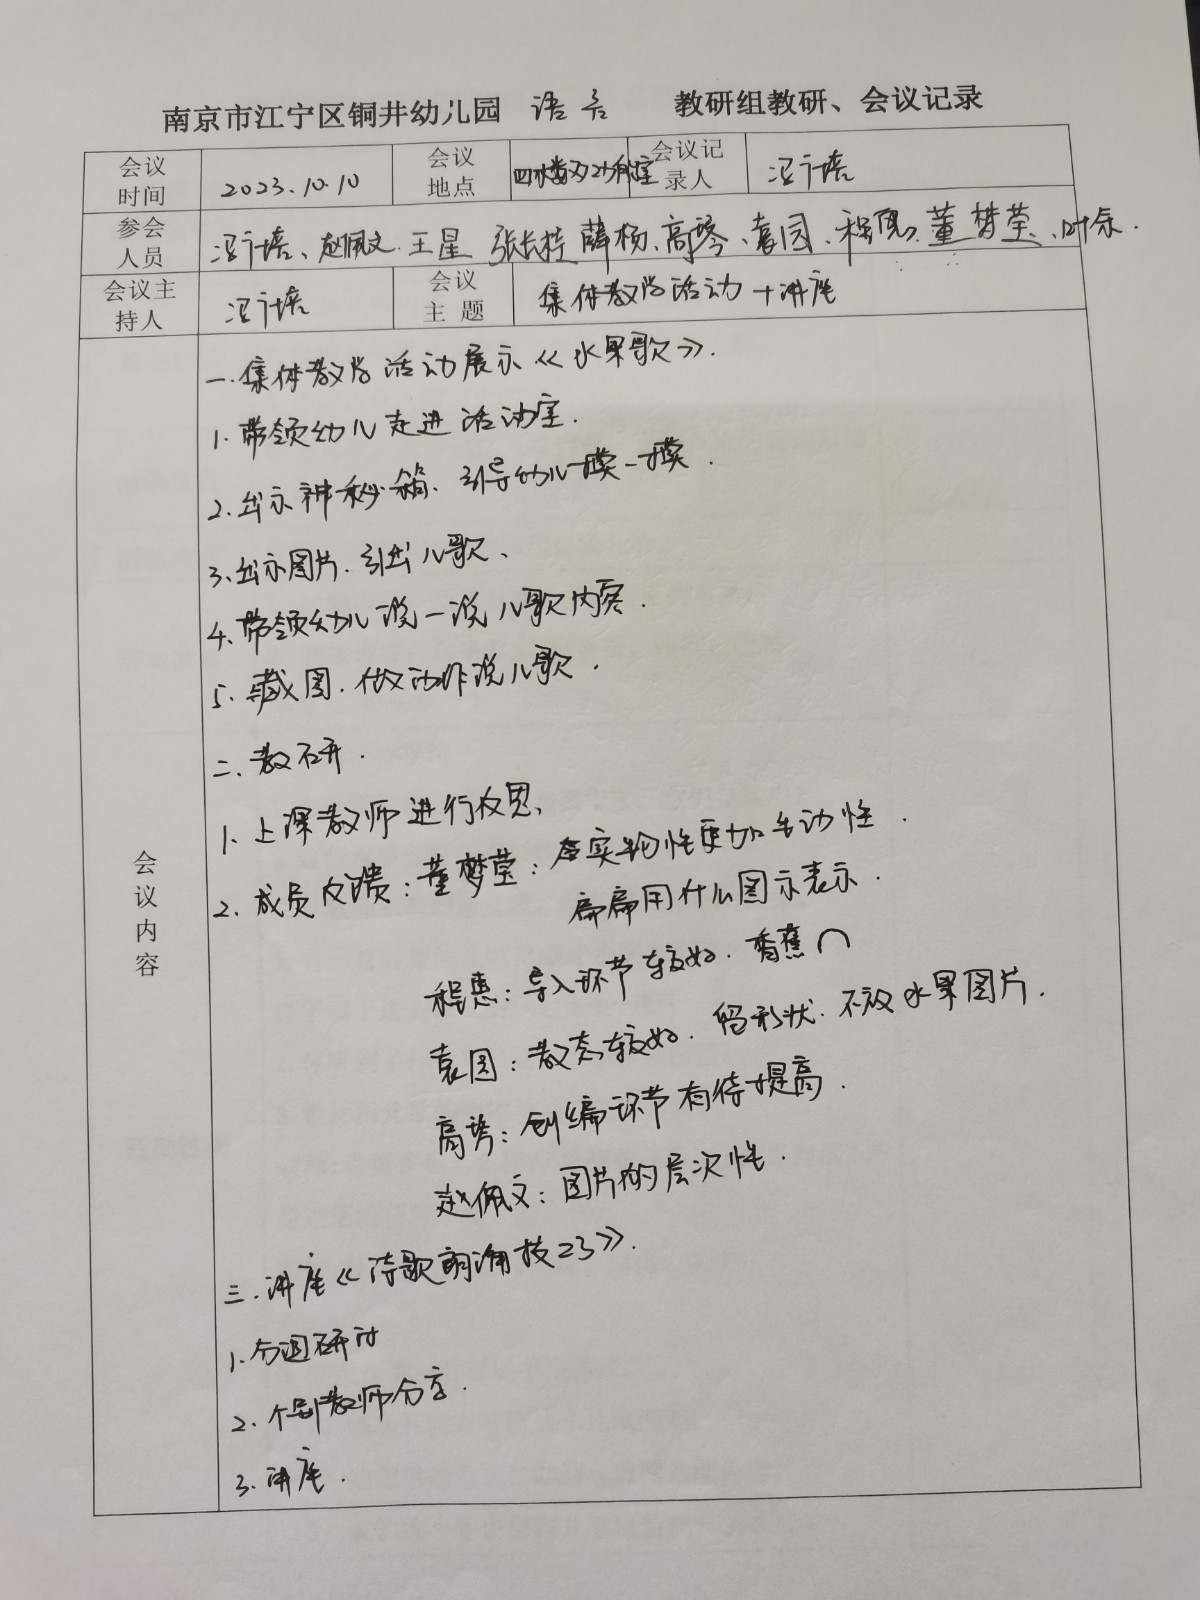 南京市江宁区铜井幼儿园 语言 教研组教研、会议记录
会议时间 2023.10.10 会议地点 会议记录人 汪许培
参会人员 汪许培、赵佩文、王星 张长桂 薛杨、高琴、袁园、程惠、董梦莹、叶余
会议主持人 汪许培 会议主题 集体教学活动+讲座
会议内容
一.集体教学活动展示《水果歌》.
1.带领幼儿走进活动室.
2.出示神秘箱、引导幼儿摸一摸.
3.出示图片.引出儿歌、
4.带领幼儿说一说儿歌内容.
5.藏图.做动作说儿歌.
二、教研.
1.上课教师进行反思、
2.成员反馈:董梦莹:虚实轮性更加生动性.
扁扁用什么图示表示.
程惠:导入环节较好.香蕉∩
袁园:教态较好.留形状.不放水果图片.
高琴:创编环节有待提高.
赵佩文:图片的层次性.
三.讲座《诗歌朗诵技巧》.
1.分组研讨
2.个别教师分享.
3.讲座.